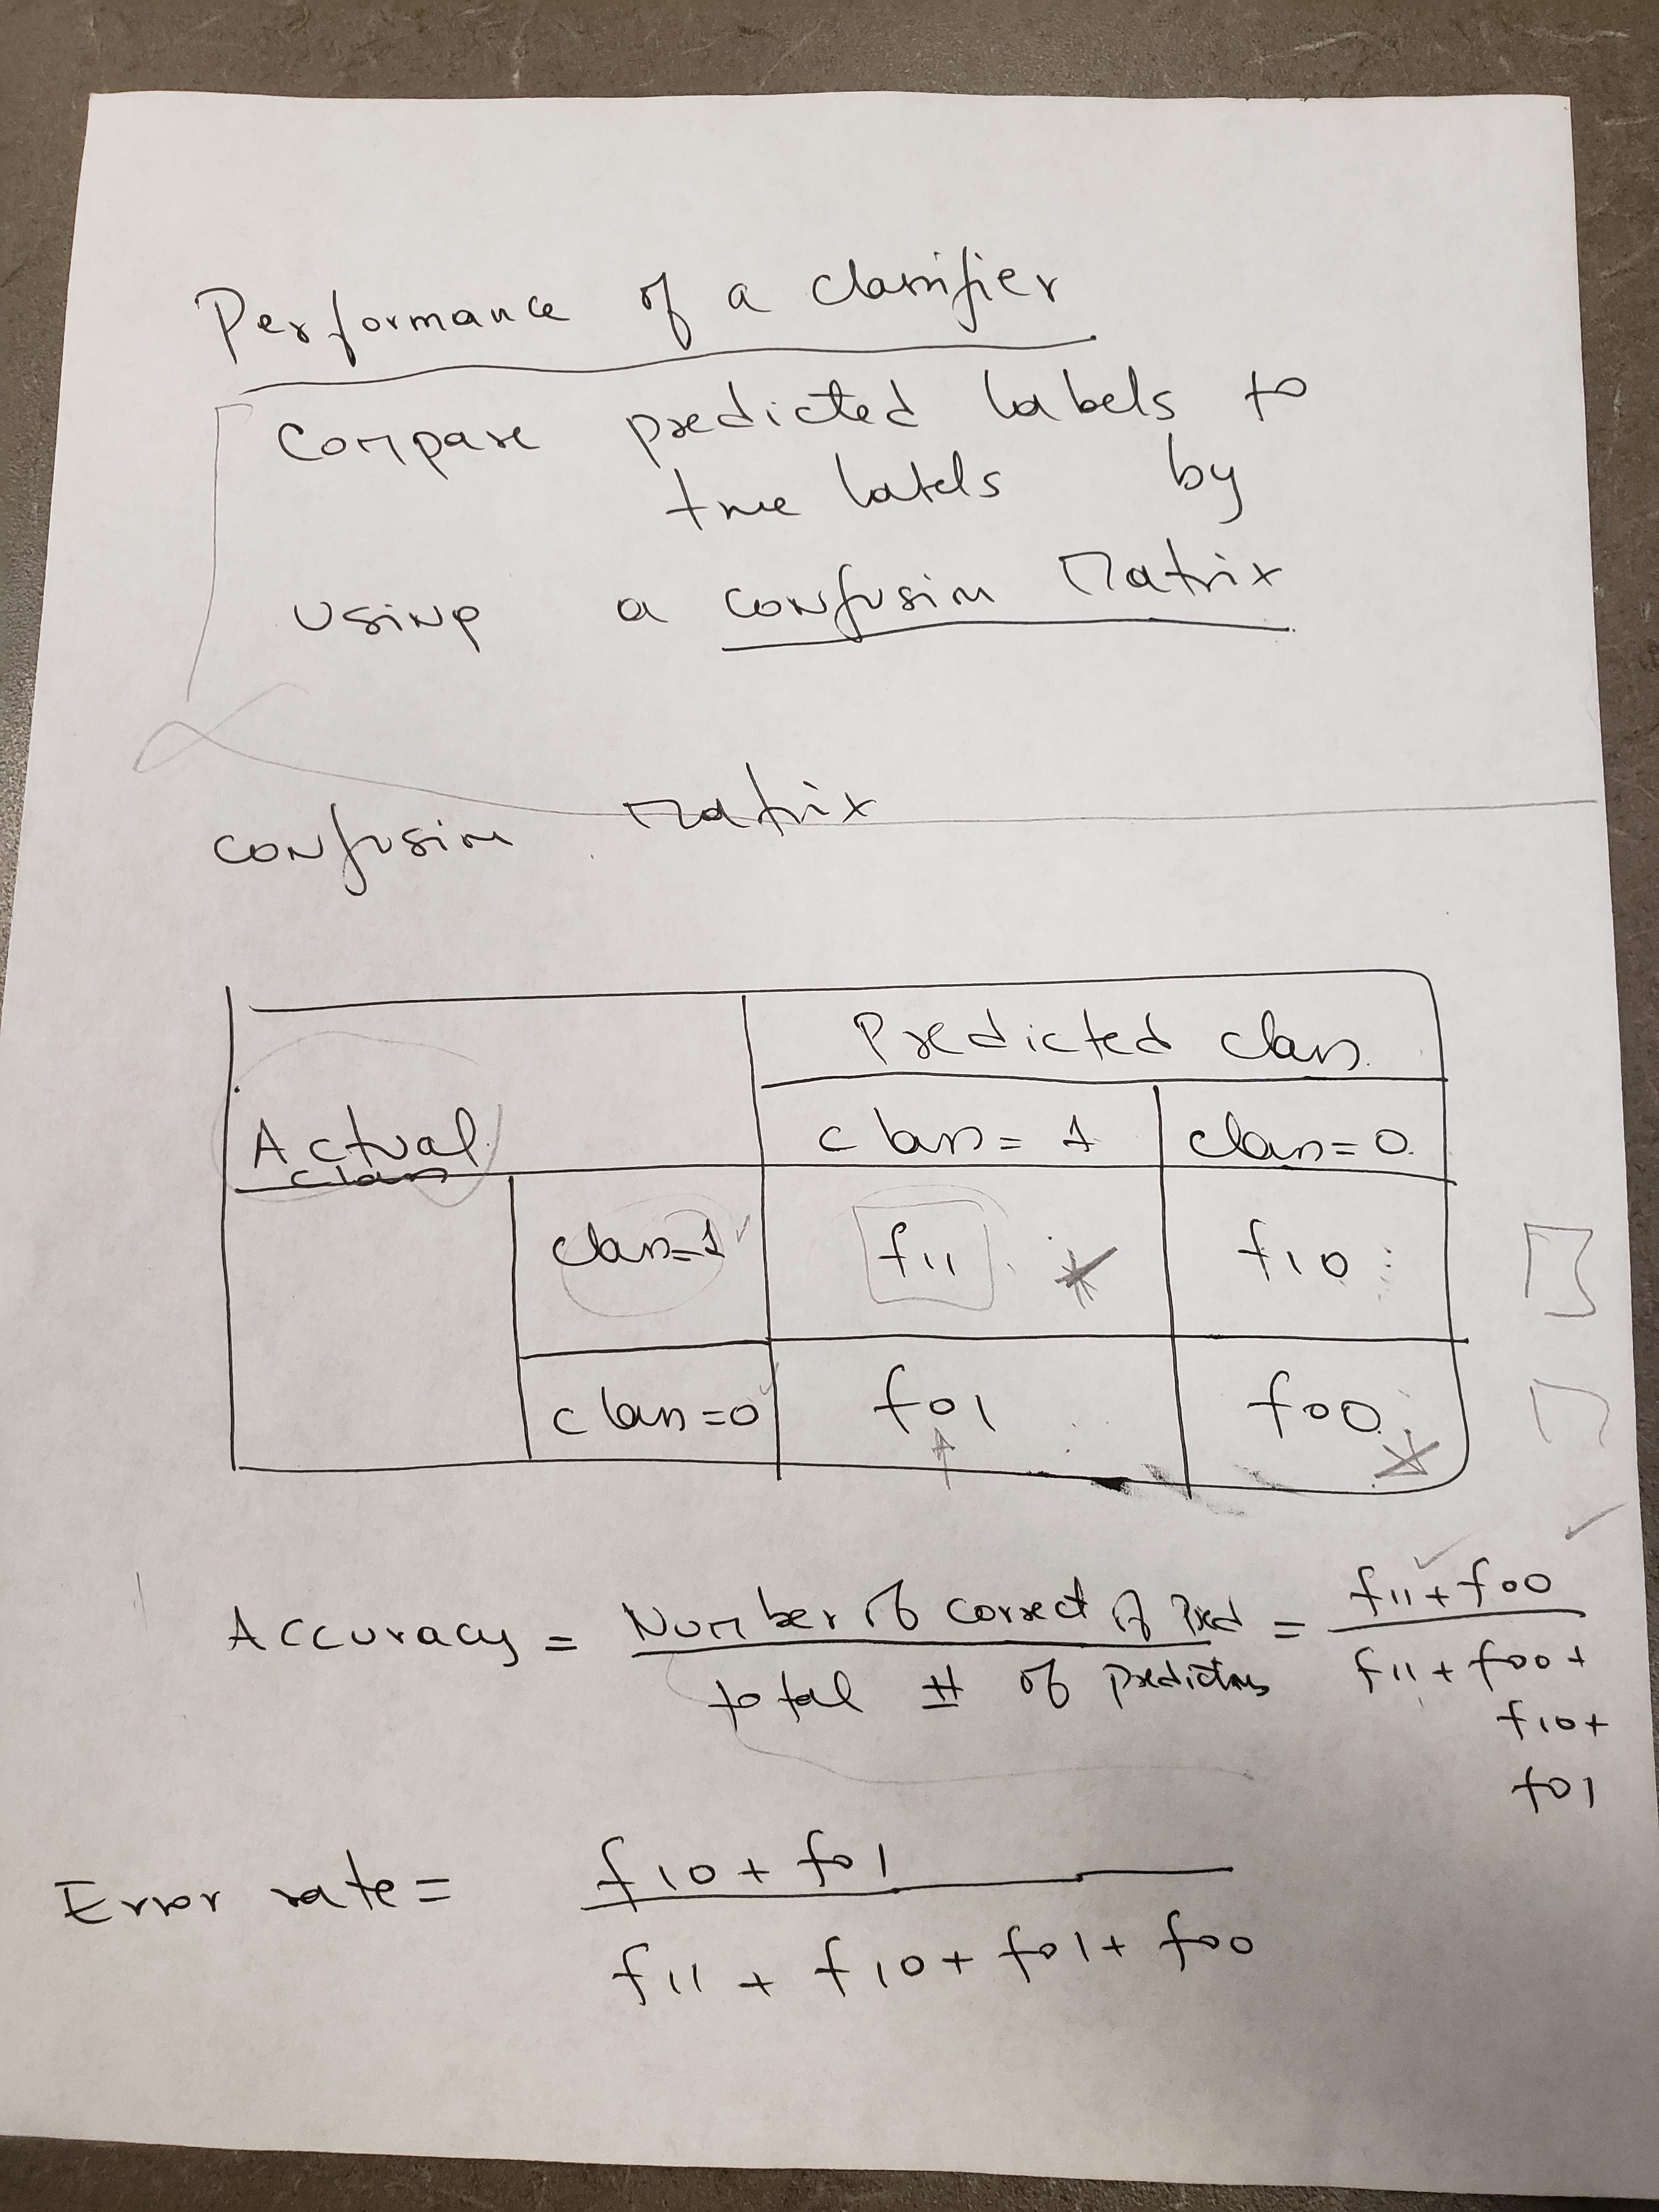 Performance of a classifier
Compare predicted labels to
true labels by
using a confusion Matrix
confusion Matrix
Predicted class
Actual class = 1 class = 0
class
class = 1 f11 f10
class = 0 f01 f00
Accuracy = Number of correct of Pred = f11 + f00
total # of predictions f11 + f00 +
f10 +
f01
Error rate = f10 + f01
f11 + f10 + f01 + f00